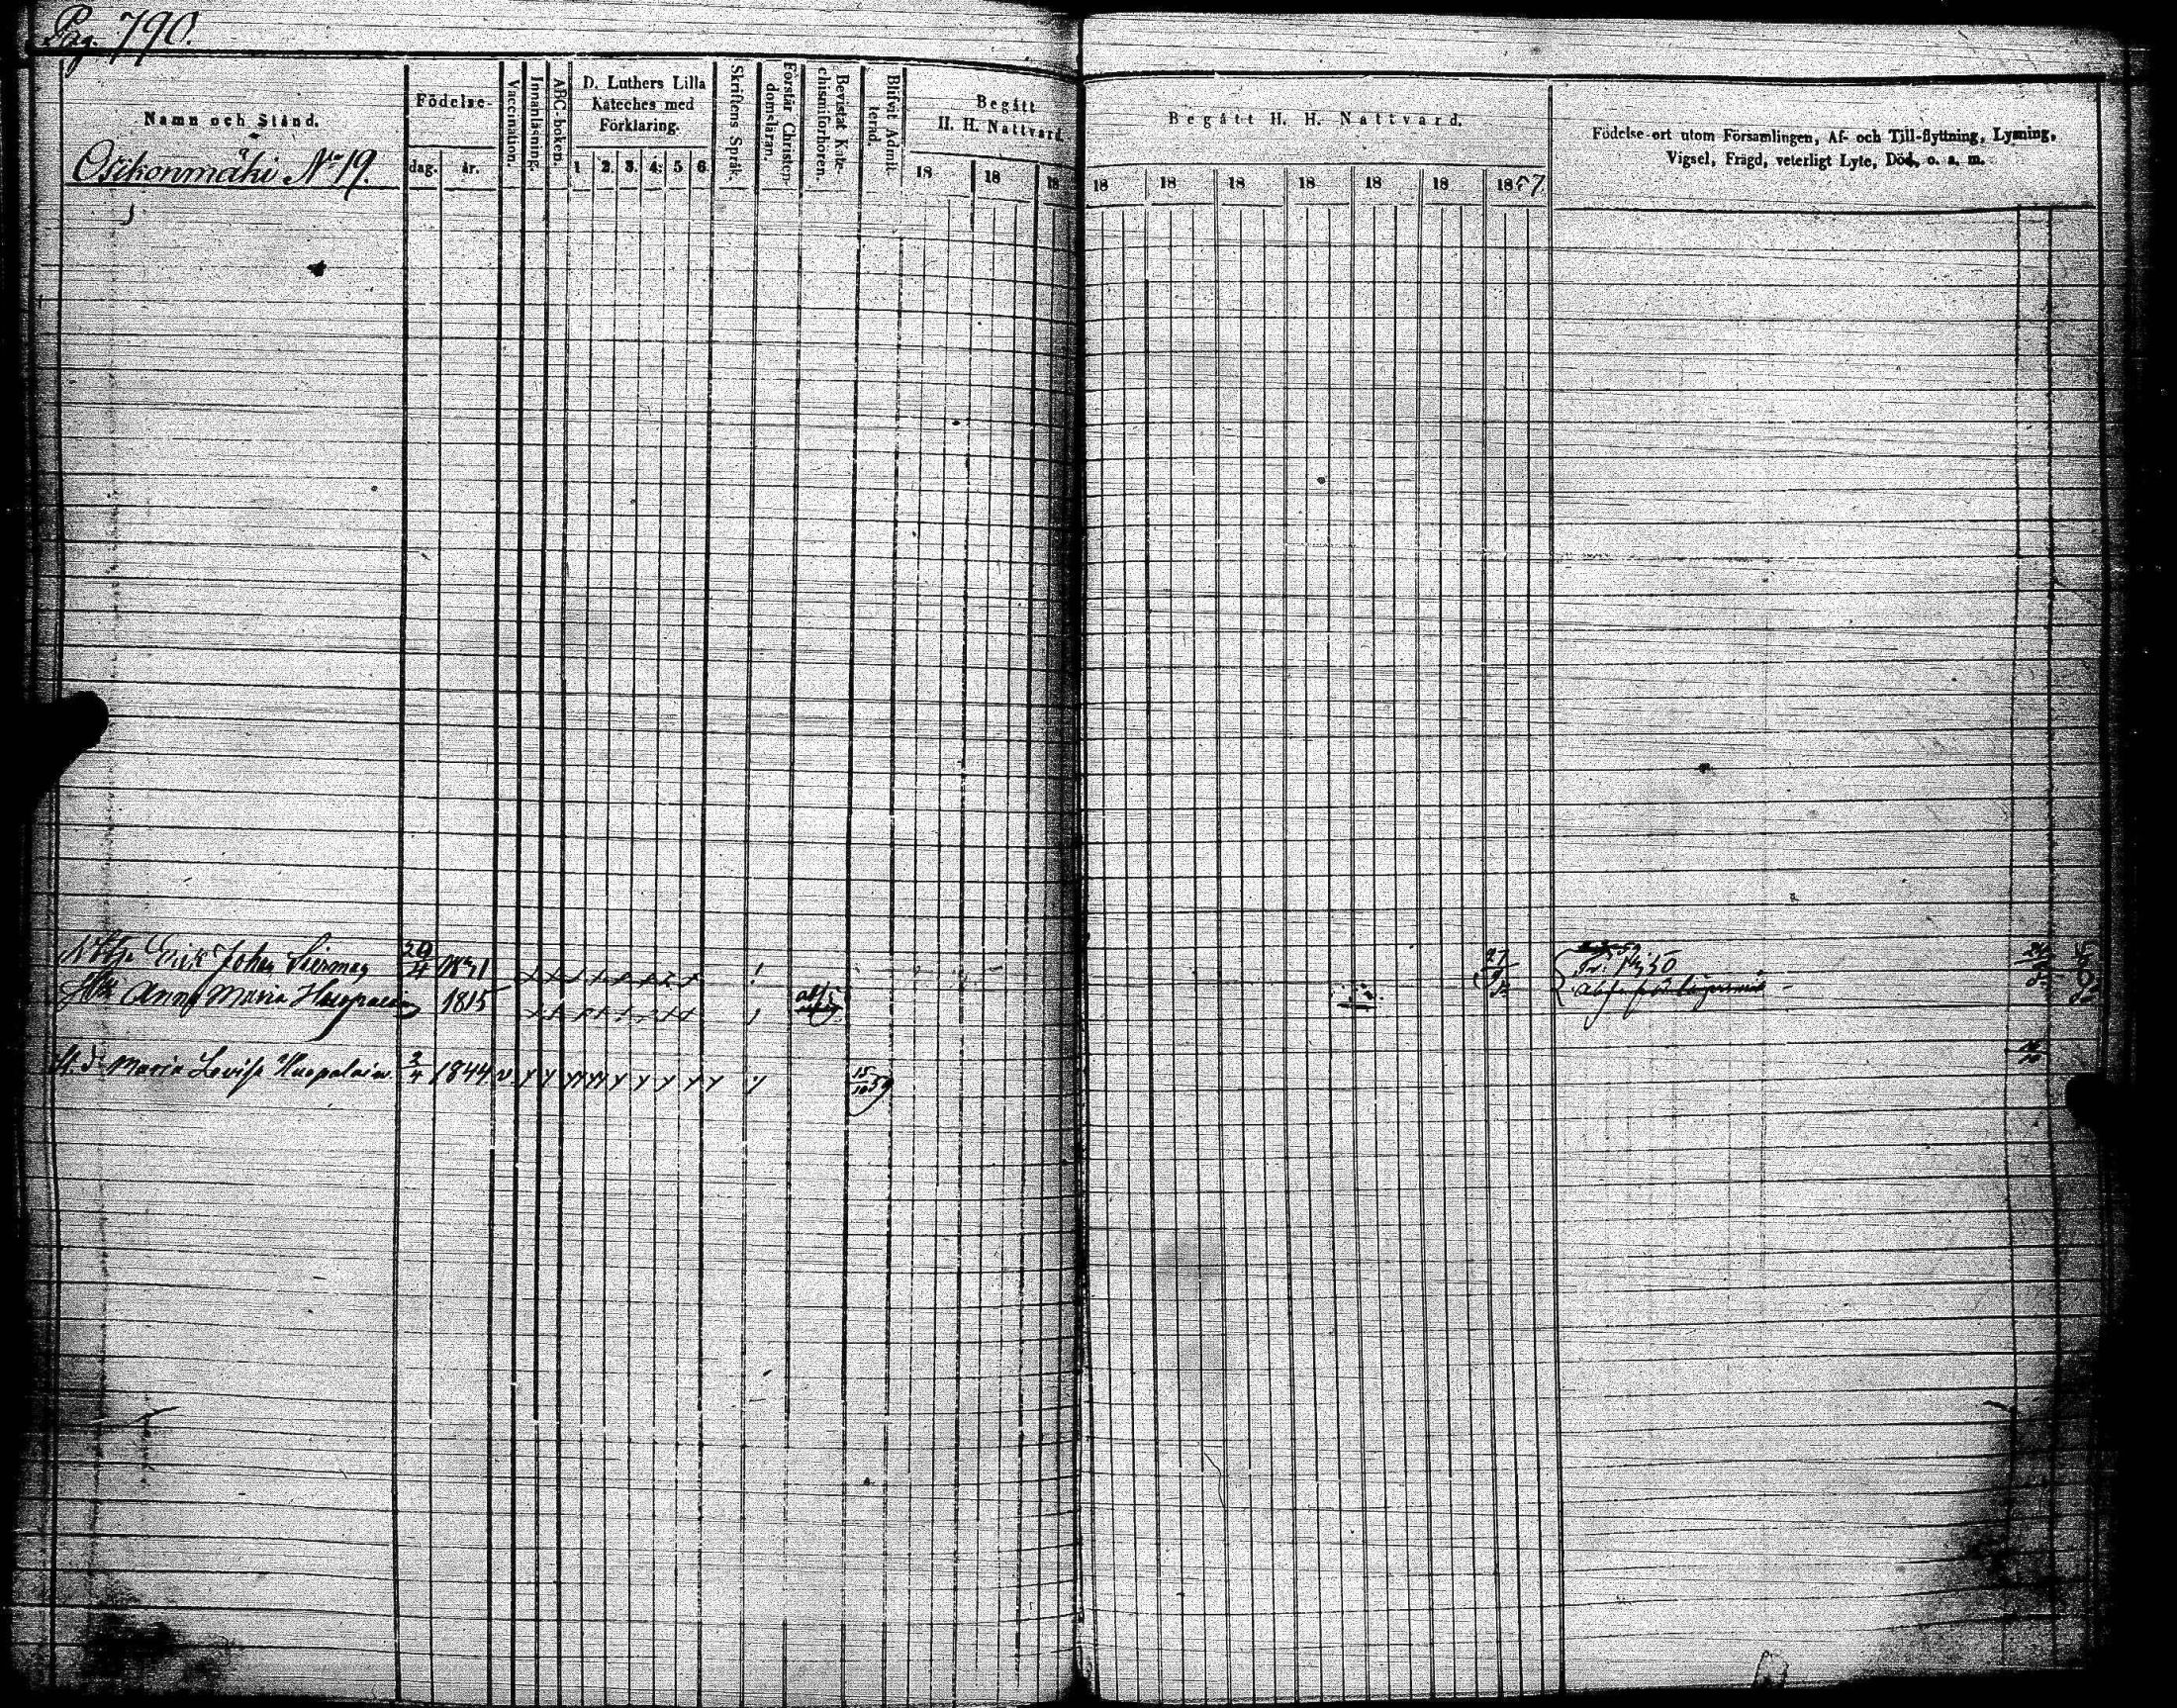 Pag. 790.
Namn och Stånd.
Osikonmäki No 19.
Födelse-
dag. år.
Vaccination.
Innanläsning.
ABC-boken.
D. Luthers Lilla
Kateches med
Förklaring.
1 2. 3. 4. 5 6
Skriftens Språk.
Förstår Christen-
domsläran.
Bevistat Kate-
chismiförhören.
Blifvit Admit-
terad.
Begått
H. H. Nattvard.
18 18 18
Begått H. H. Nattvard.
18 18 18 18 18 18 1857
Födelse-ort utom Församlingen, Af- och Till-flyttning, Lysning,
Vigsel, Frägd, veterligt Lyte, Död, o. a. m.
Erik Johan 29/4
Anna Maria 1815
Maria Lovisa Huopalain 2/4 1844 v 15/10 59